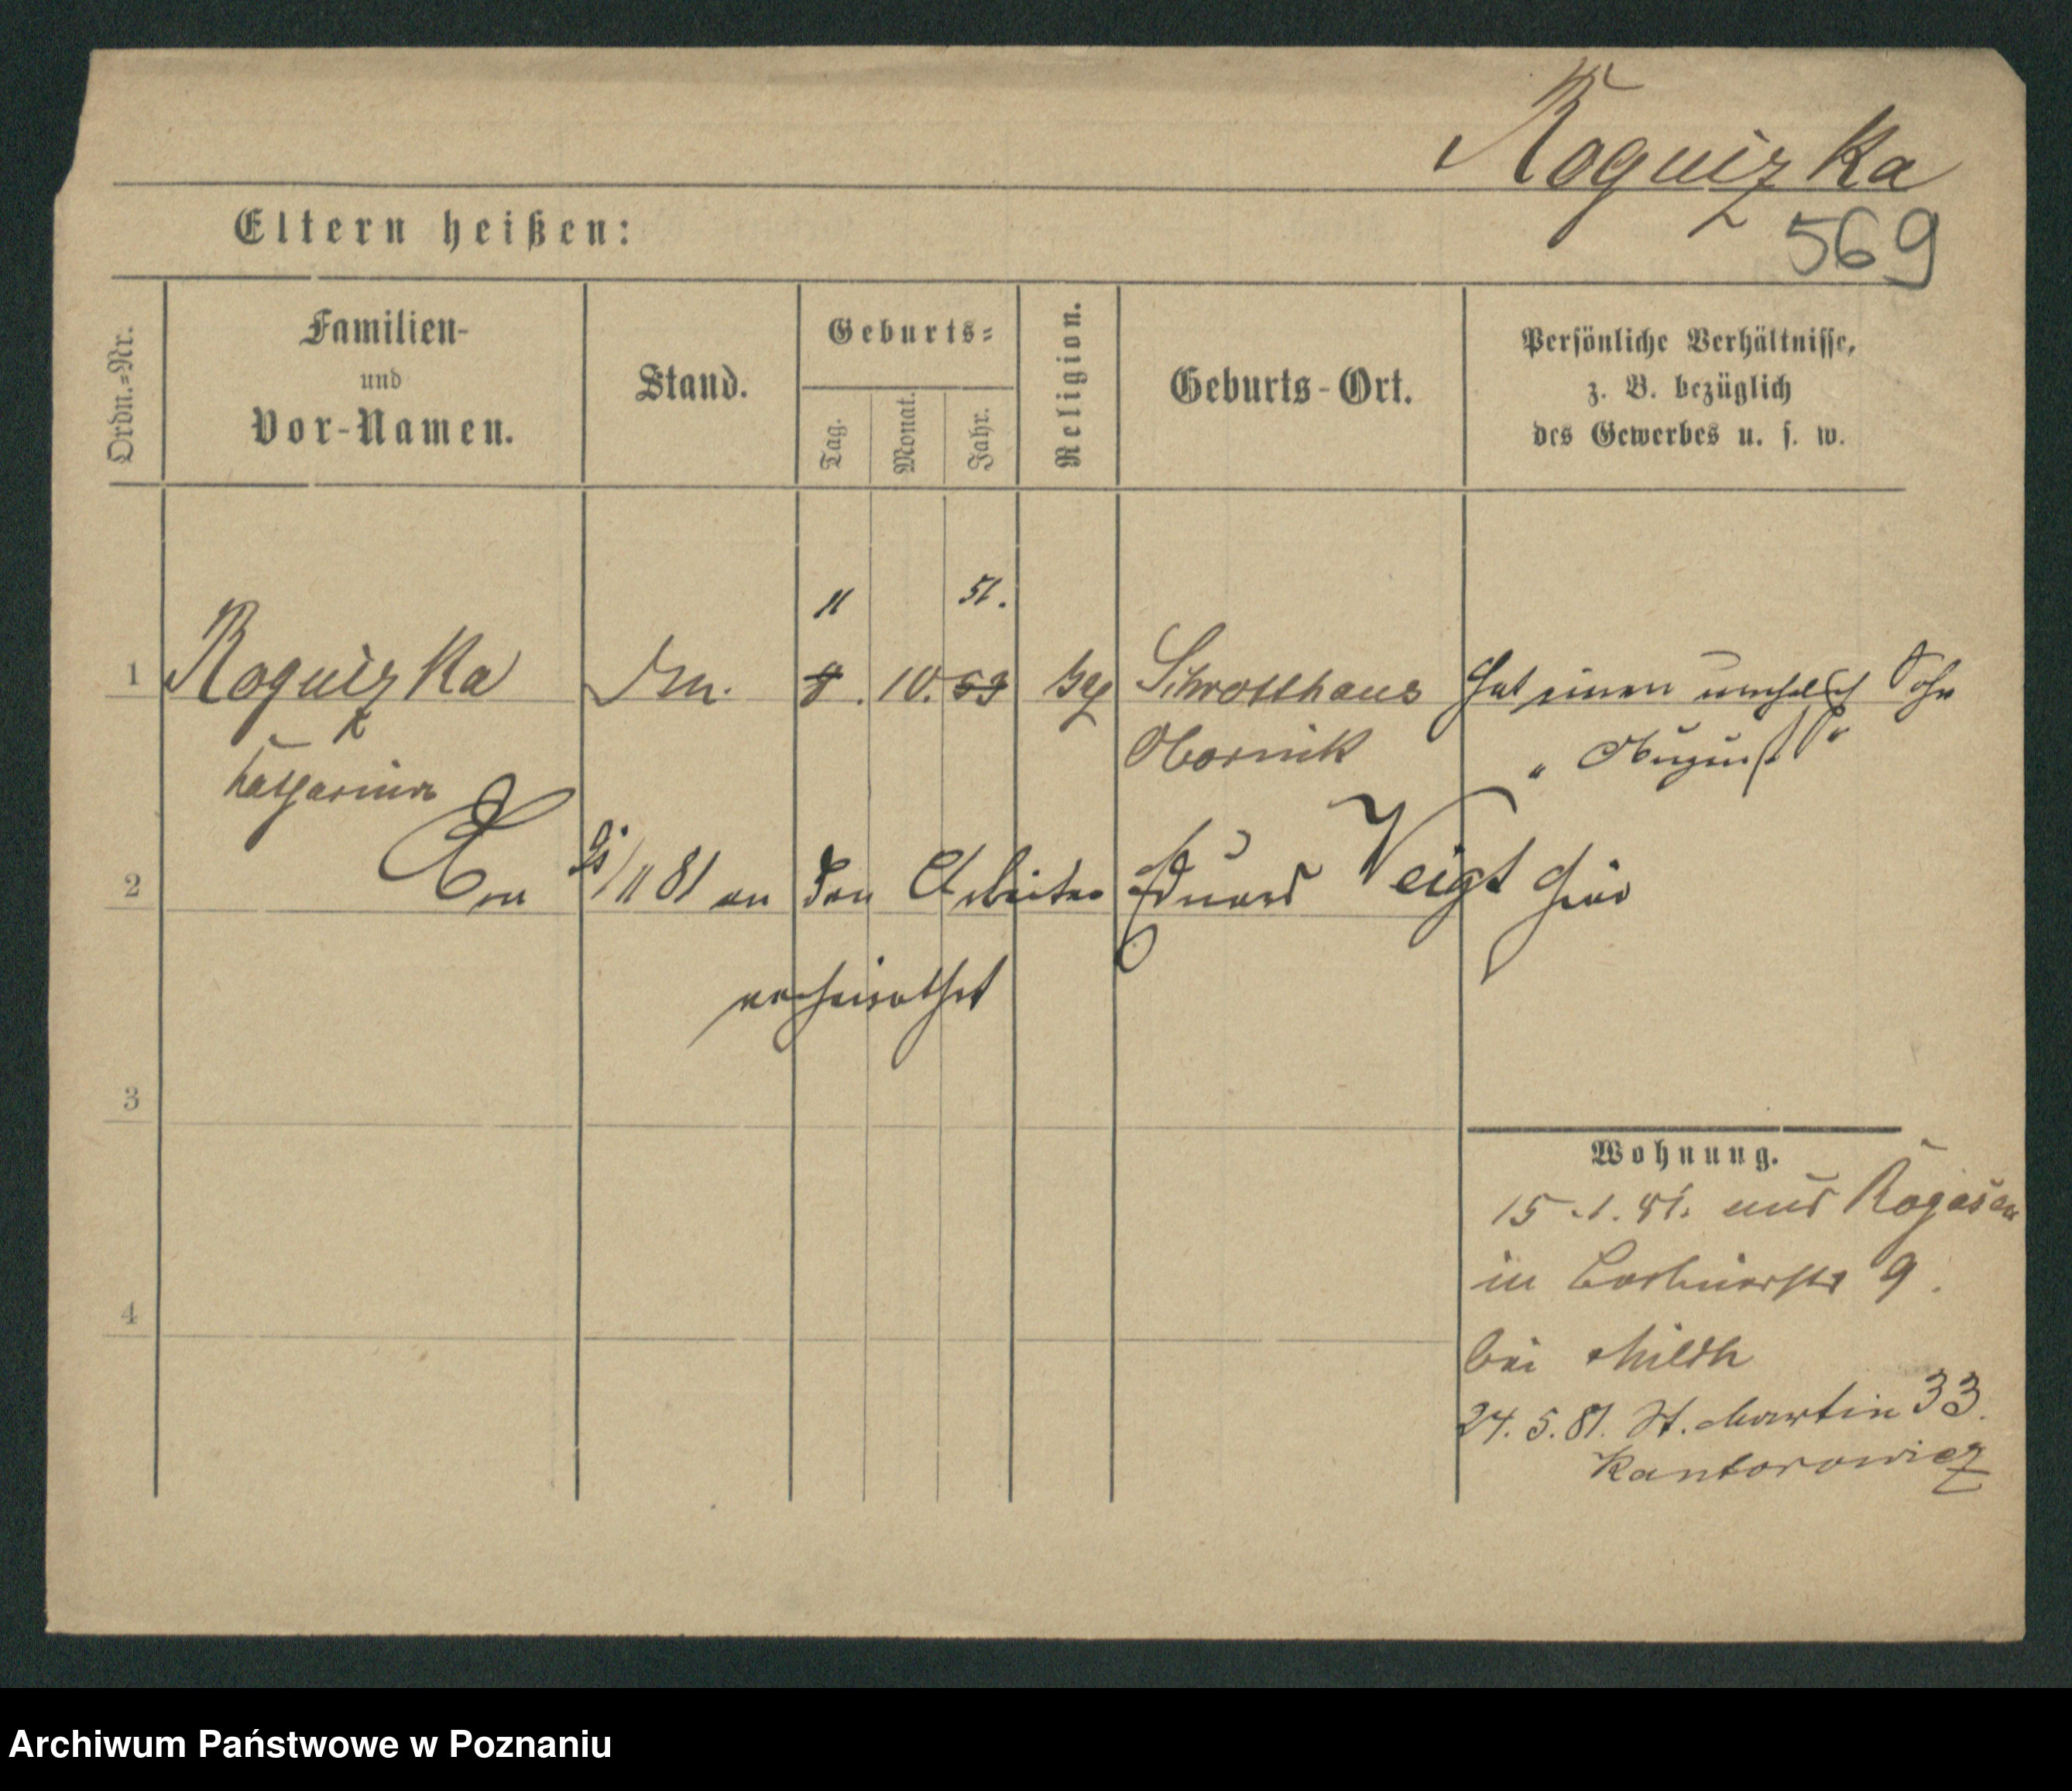 Roguizka
569
Eltern heißen:
Ordn.=Nr.
Familien-
und
Vor-Namen.
Stand.
Geburts=
Tag.
Monat.
Jahr.
Religion.
Geburts-Ort.
Persönliche Verhältnisse,
z. B. bezüglich
des Gewerbes u. s. w.
11 51.
1 Roguizka 8. 10. 53 Schrotthaus Hat einen unehelich Sohn
Katharina Obornik " August "
2 Am /11 81 an den Arbeiter Eduard Veigt hier
verheirathet
3
4
Wohnung.
15.1.81. aus Rogasen
in 9.
bei
24.5.81. St. Martin 33.
Kantorowicz
Archiwum Państwowe w Poznaniu